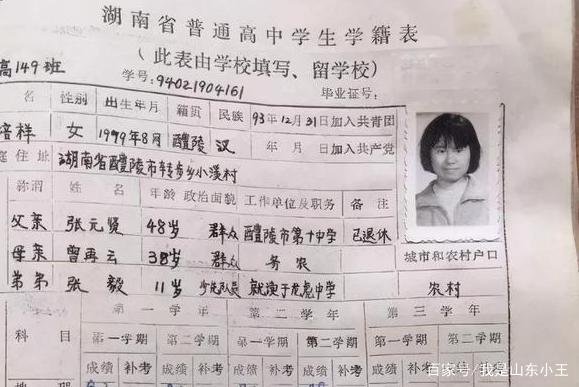 湖南省普通高中学生学籍表
(此表由学校填写、留学校)
高149班
学号:94021904161
毕业证号:
名 性别 出生年月 籍贯 民族 93年12月31日加入共青团
培样 女 1979年8月 醴陵 汉 年 月 日加入共产党
庭住址 湖南省醴陵市转步乡小溪村
称谓 姓名 年龄 政治面貌 工作单位及职务 备注
父亲 张元贤 48岁 群众 醴陵市第十中学 已退休
母亲 曾再云 38岁 群众 务农
弟弟 张毅 11岁 少先队员 就读于龙虎中学
城市和农村户口
农村
科目 第一学年 第二学年 第三学年
第一学期 第二学期 第一学期 第二学期 第一学期 第二学期
成绩 补考 成绩 补考 成绩 补考 成绩 补考 成绩 补考
百家号/我是山东小王